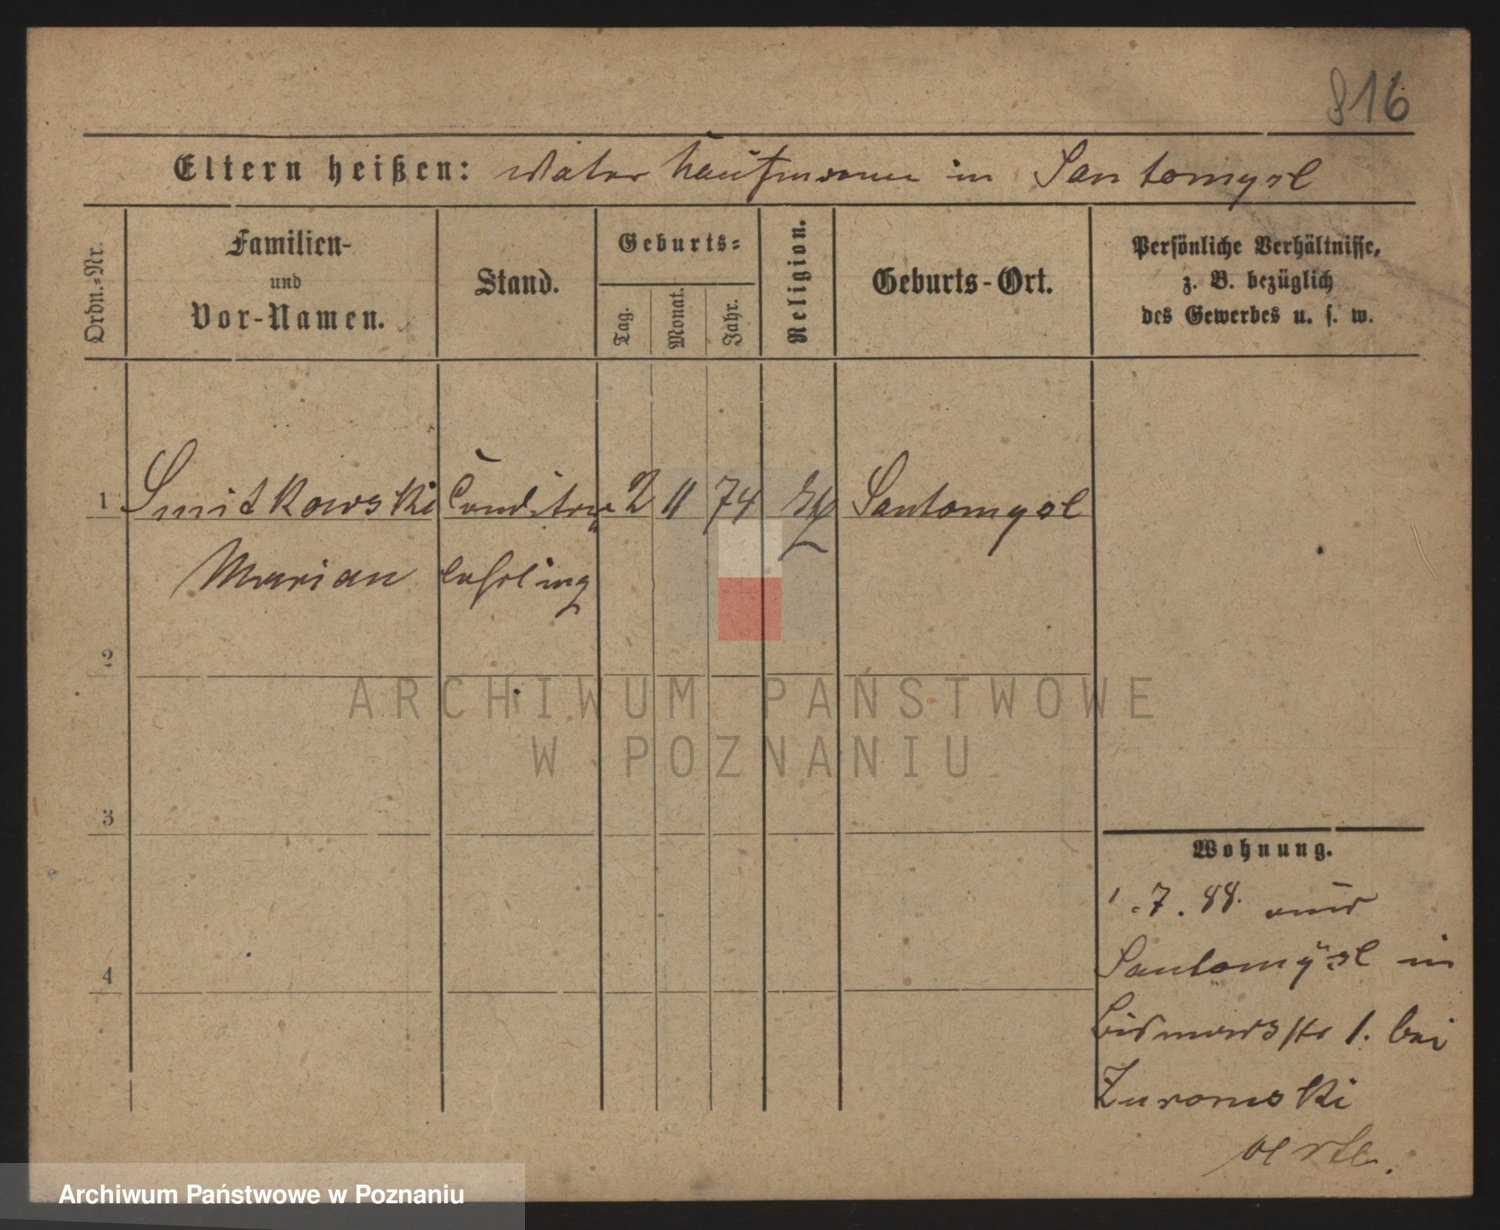 816
Eltern heißen: Vater Kaufmann in Santomysl
Ordn.-Nr.
Familien-
und
Vor-Namen.
Stand.
Geburts-
Tag.
Monat.
Jahr.
Religion.
Geburts-Ort.
Persönliche Verhältnisse,
z. B. bezüglich
des Gewerbes u. s. w.
1 Smitkowski Conditor 2 11 74 Santomysl
Marian lehrling
2
3
4
Wohnung.
1.7.88. aus
Santomysl in
Bismarckstr 1. bei
Zuromski
ARCHIWUM PAŃSTWOWE
W POZNANIU
Archiwum Państwowe w Poznaniu